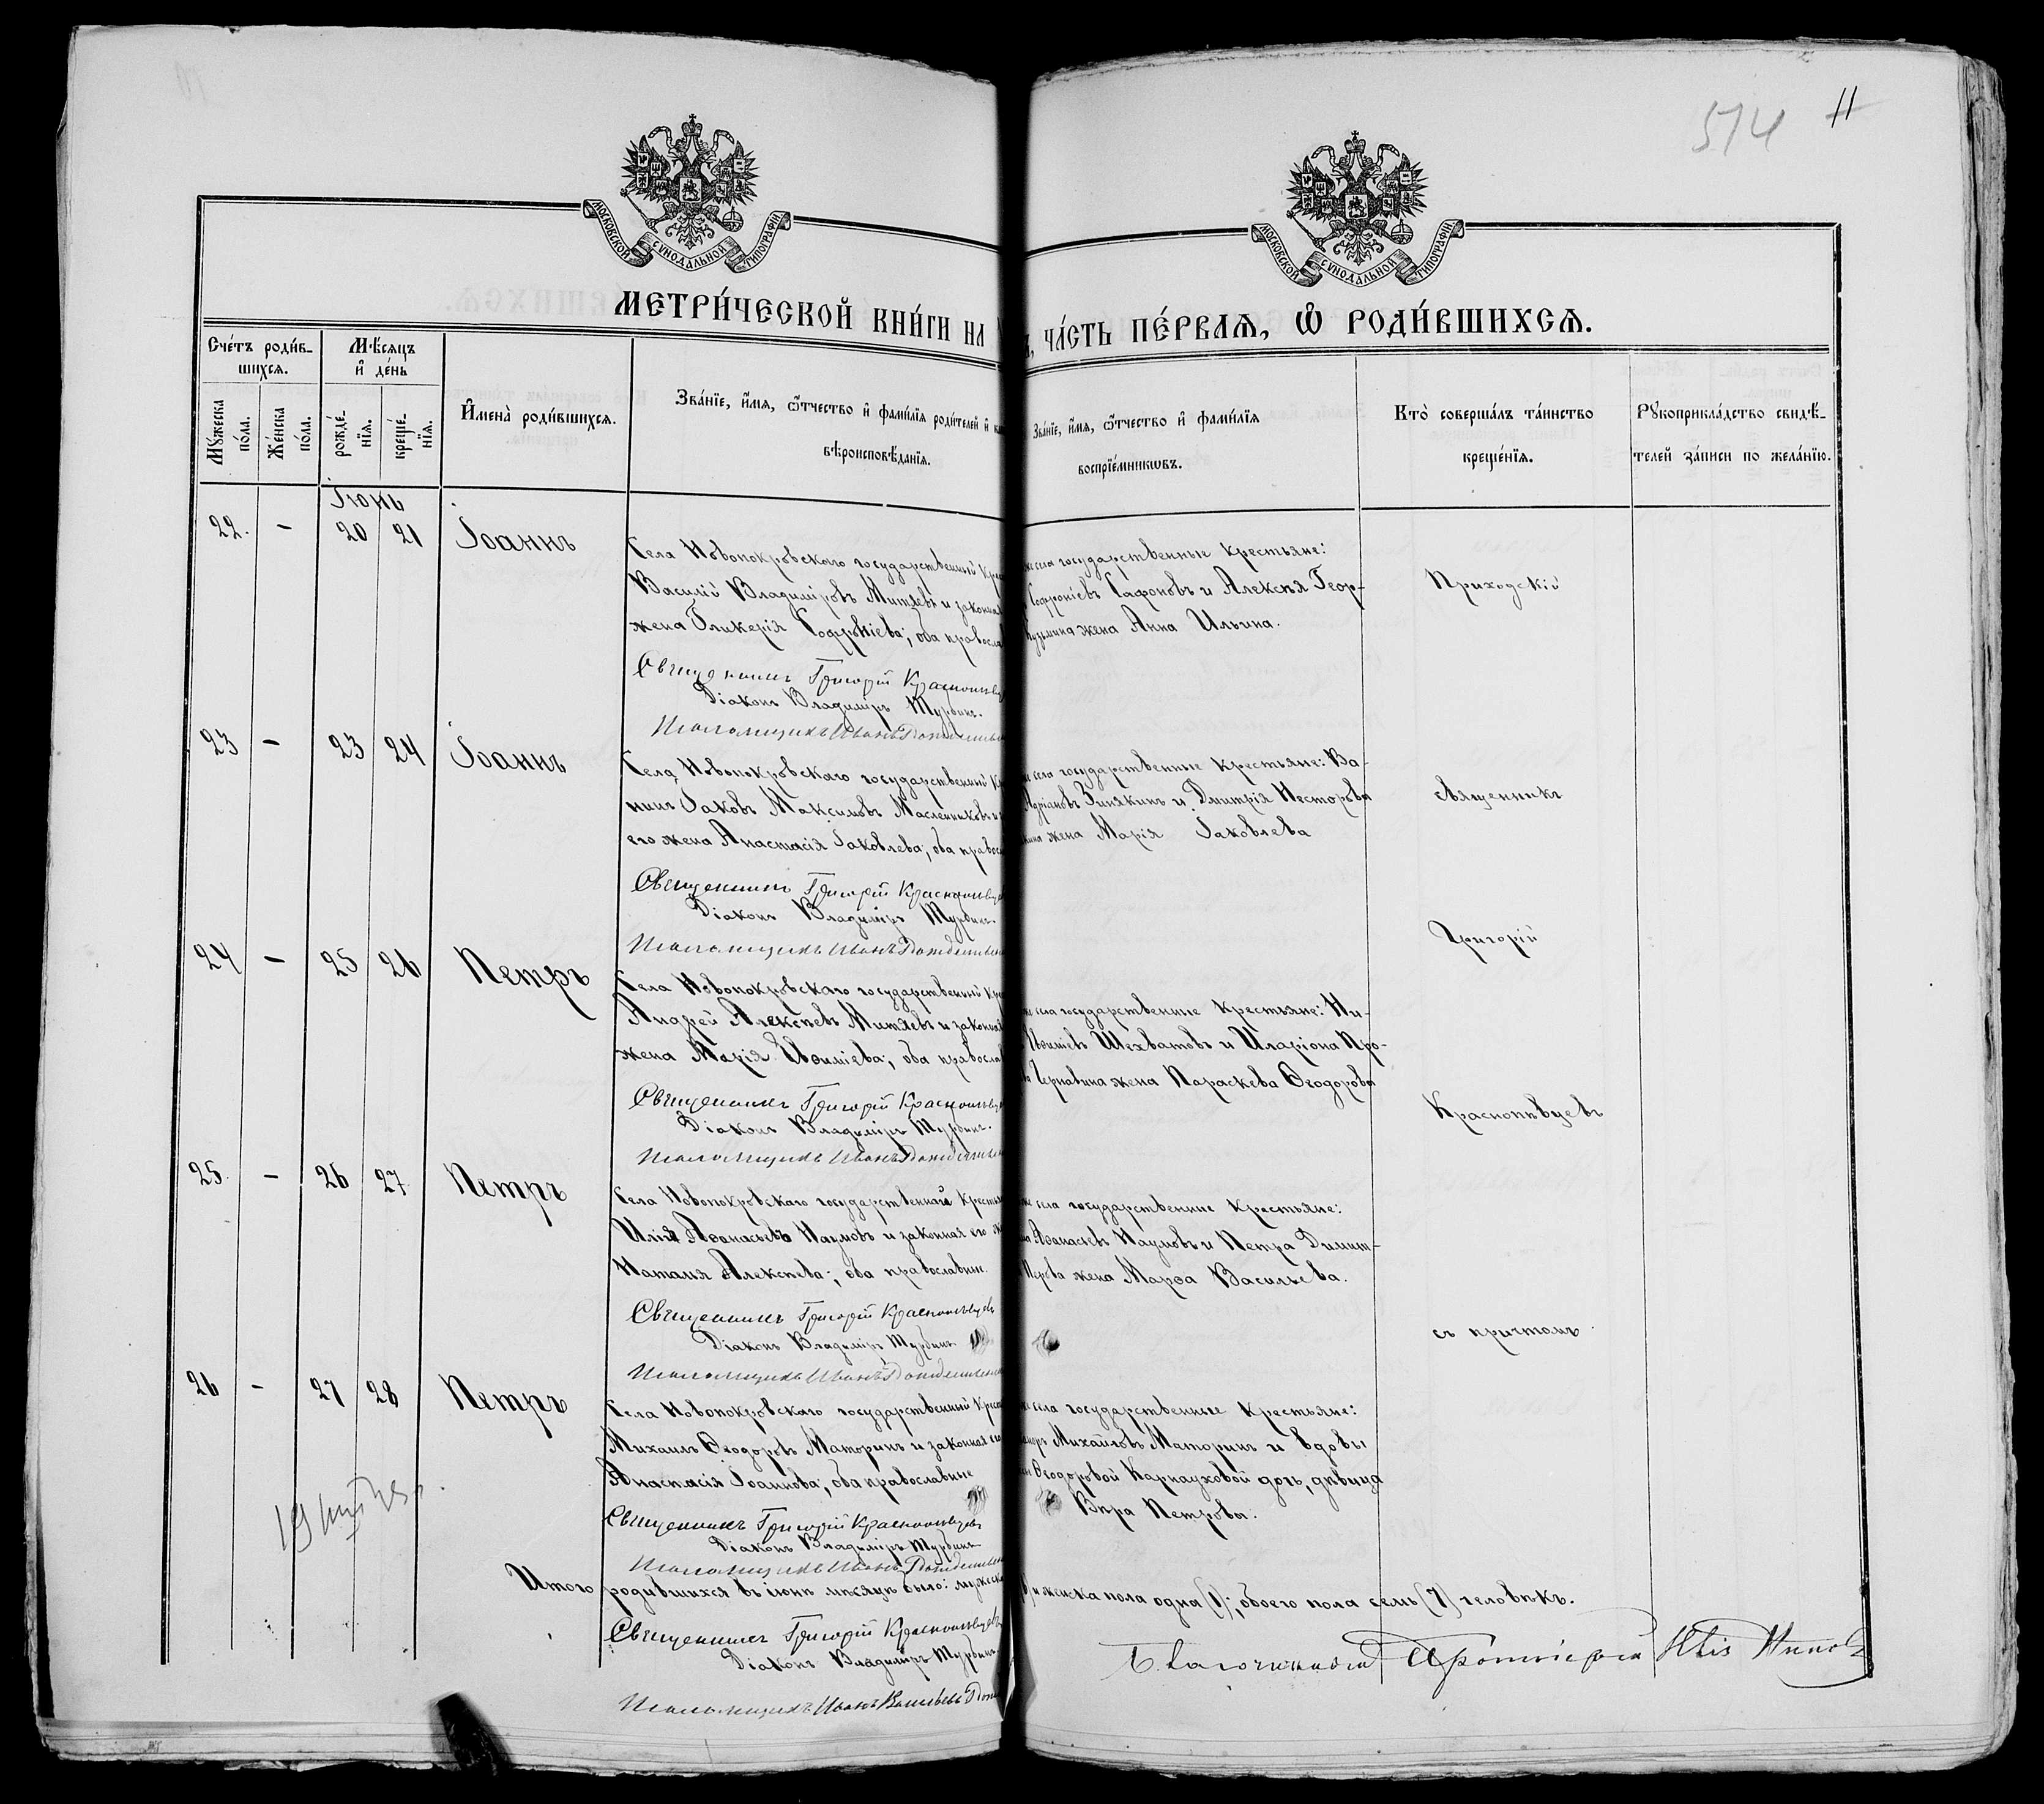 574 11
МОСКОВСКОЙ СѴНОДАЛЬНОЙ ТИПОГРАФІИ
МОСКОВСКОЙ СѴНОДАЛЬНОЙ ТИПОГРАФІИ
МЕТРИ́ЧЕСКОЙ КНИ́ГИ НА
ЧА́СТЬ ПЕ́РВАѦ, Ѡ҆ РОДИ́ВШИХСѦ.
Сче́тъ роди́в-
шихсѧ.
Мꙋ́жеска
по́ла.
Же́нска
по́ла.
Мѣ́сѧцъ
и҆ де́нь
рожде́-
нїѧ.
креще́-
нїѧ.
И҆мена̀ роди́вшихсѧ.
Зва́нїе, и҆́мѧ, ѻ҆́тчество и҆ фами́лїѧ роди́телей и҆
вѣроисповѣ́данїѧ.
Зва́нїе, и҆́мѧ, ѻ҆́тчество и҆ фами́лїѧ
воспрїе́мникѡвъ.
Кто̀ соверша́лъ та́инство
креще́нїѧ.
Рꙋкоприкла́дство свидѣ́-
телей за́писи по жела́нїю.
Іюнь
22. – 20 21 Іоаннъ
Села Новопокровскаго государственный
Василій Владиміровъ Митяевъ и
жена Гликерія Софроніева; оба
Священникъ Григорій
Діаконъ Владиміръ Турбинъ.
Псаломщикъ Иванъ
села государственные крестьяне:
Софроніевъ Сафоновъ и Алексѣя Геор-
Кузьмина жена Анна Ильина.
Приходскій
23 – 23 24 Іоаннъ
Села Новопокровскаго государственный
нинъ Іаковъ Максимовъ Масленниковъ
его жена Анастасія Іаковлева; оба
Священникъ Григорій
Діаконъ Владиміръ Турбинъ.
Псаломщикъ Иванъ
села государственные крестьяне: Ва-
Адріановъ Зинякинъ и Дмитрія Несторова
жена Марія Іаковлева
священникъ
24 – 25 26 Петръ
Села Новопокровскаго государственный
Андрей Алексѣевъ Митяевъ и
жена Марія Ивоиліева; оба
Священникъ Григорій
Діаконъ Владиміръ Турбинъ.
Псаломщикъ Иванъ
села государственные крестьяне: Ни-
Шехватовъ и Иларіона Про-
Чернавина жена Параскева Ѳеодорова
Григорій
Краснопѣвцевъ
25. – 26 27 Петръ
Села Новопокровскаго государственный
Илія Аѳанасьевъ Наумовъ и законная его
Наталія Алексѣева; оба православны.
Священникъ Григорій Краснопѣвцевъ
Діаконъ Владиміръ Турбинъ
Псаломщикъ Иванъ
села государственные крестьяне:
Аѳанасьевъ Наумовъ и Петра Димит-
Перова жена Марѳа Васильева.
съ причтомъ.
26 – 27 28 Петръ
Села Новопокровскаго государственный
Михаилъ Ѳеодоровъ Маторинъ и законная его
Анастасія Іоаннова; оба православные
Священникъ Григорій Краснопѣвцевъ
Діаконъ Владиміръ Турбинъ
Псаломщикъ Иванъ
села государственные крестьяне:
Михайловъ Маторинъ и вдовы
Ѳеодоровой Карнауховой дочь, дѣвица
Вѣра Петрова.
Итого родившихся въ іюнѣ мѣсяцѣ было:
и женска пола одна (1); обоего пола семь (7) человѣкъ.
Священникъ Григорій Краснопѣвцевъ
Діаконъ Владиміръ Турбинъ
Псаломщикъ Иванъ Васильевъ
Благочинный Протоіерей